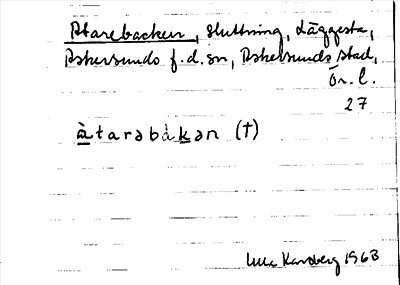 Atarebacken, sluttning, Läggesta,
Askersunds f.d. sn, Askersunds stad,
Ör. l.
27
àtarəbàkən (†)
Karlberg 1963